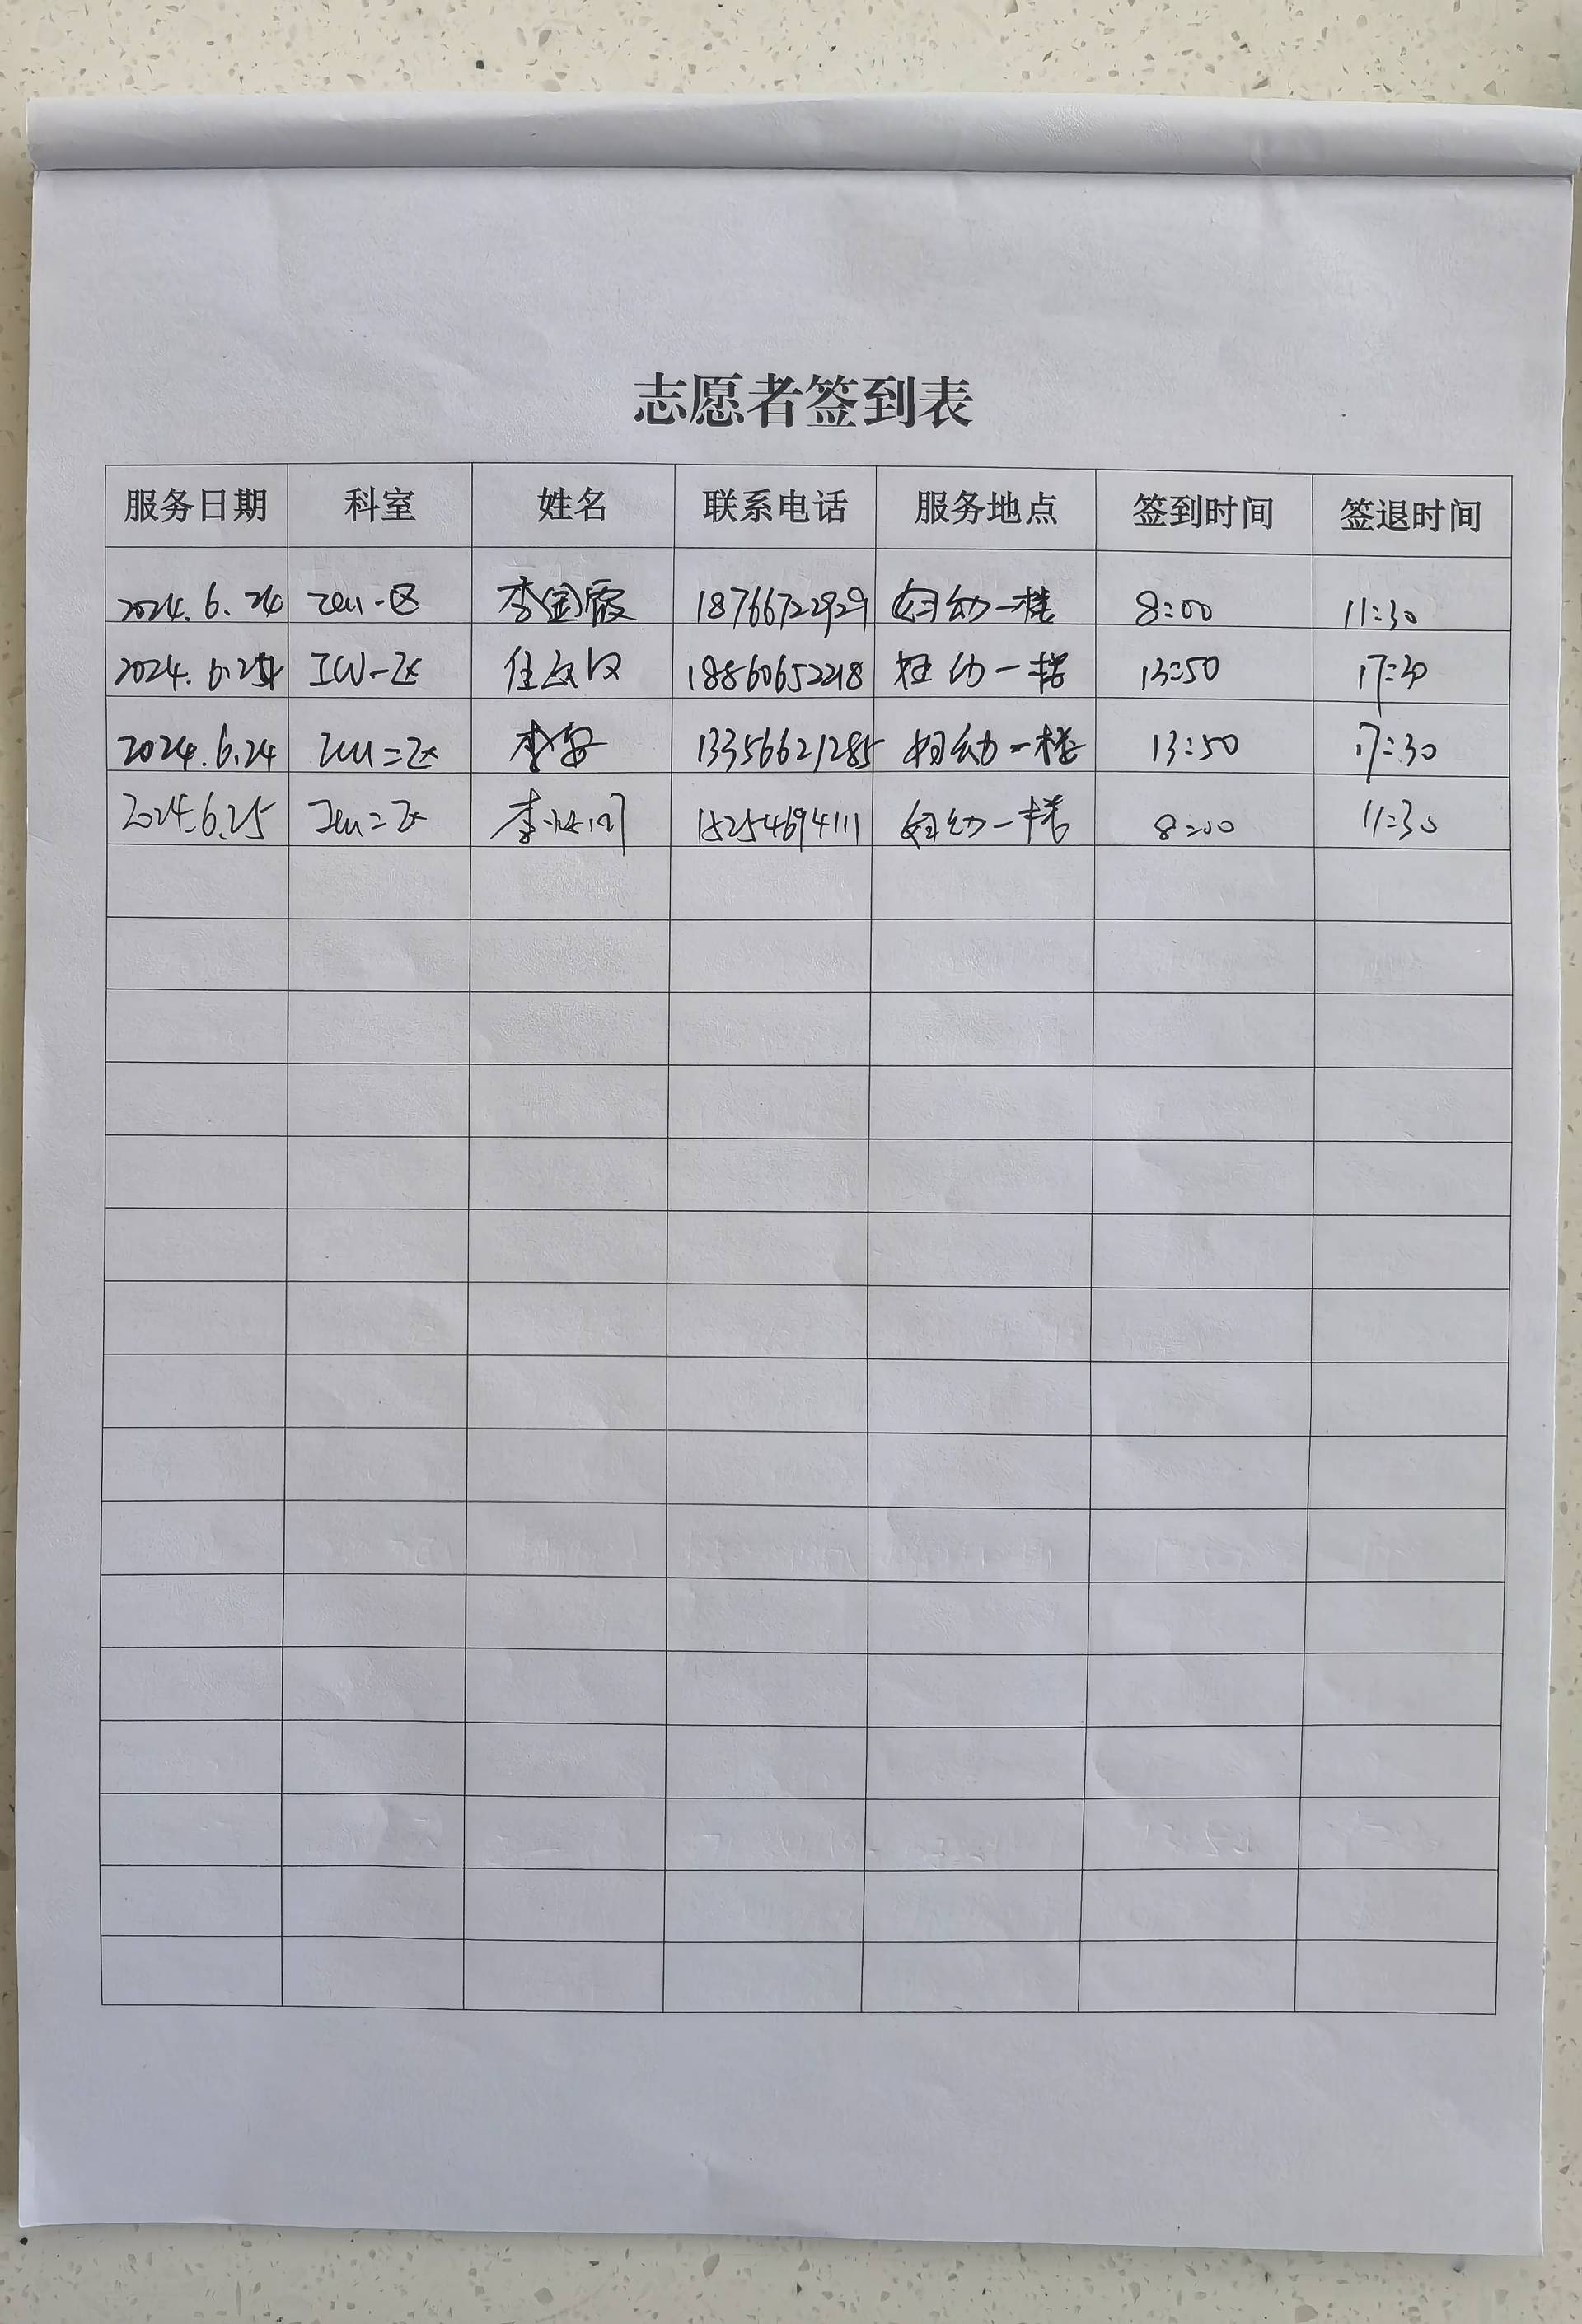 志愿者签到表
服务日期 科室 姓名 联系电话 服务地点 签到时间 签退时间
2024.6.24 ICU一区 李金霞 18766722929 妇幼一楼 8:00 11:30
2024.6.24 ICU一区 18860652218 妇幼一楼 13:50 17:30
2024.6.24 ICU二区 李 13356621285 妇幼一楼 13:50 17:30
2024.6.25 ICU二区 李 15254694111 妇幼一楼 8:00 11:30